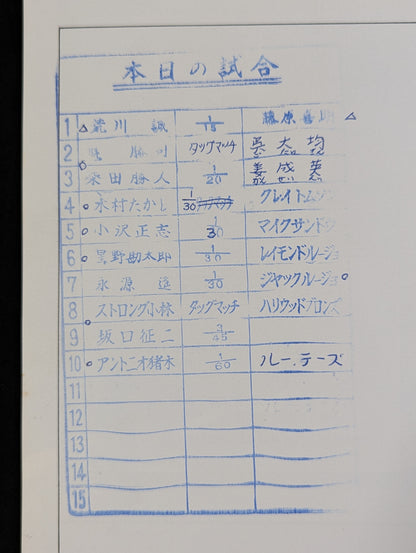 本日の試合
1 △ 荒川 誠 1/15 藤原喜明 △
2 勝司 タッグマッチ 呉大均
3 栄田勝人 1/20 姜成英
4 ○ 木村たかし 1/30 クレイトムソン
5 ○ 小沢正志 1/30 マイクサンドウ
6 ○ 星野勘太郎 1/30 レイモンドルージョ
7 永源遥 1/30 ジャックルージョ ○
8 ストロング小林 タッグマッチ ハリウッドブロンズ
9 坂口征二 3/45
10 ○ アントニオ猪木 1/60 ルー.テーズ
11
12
13
14
15